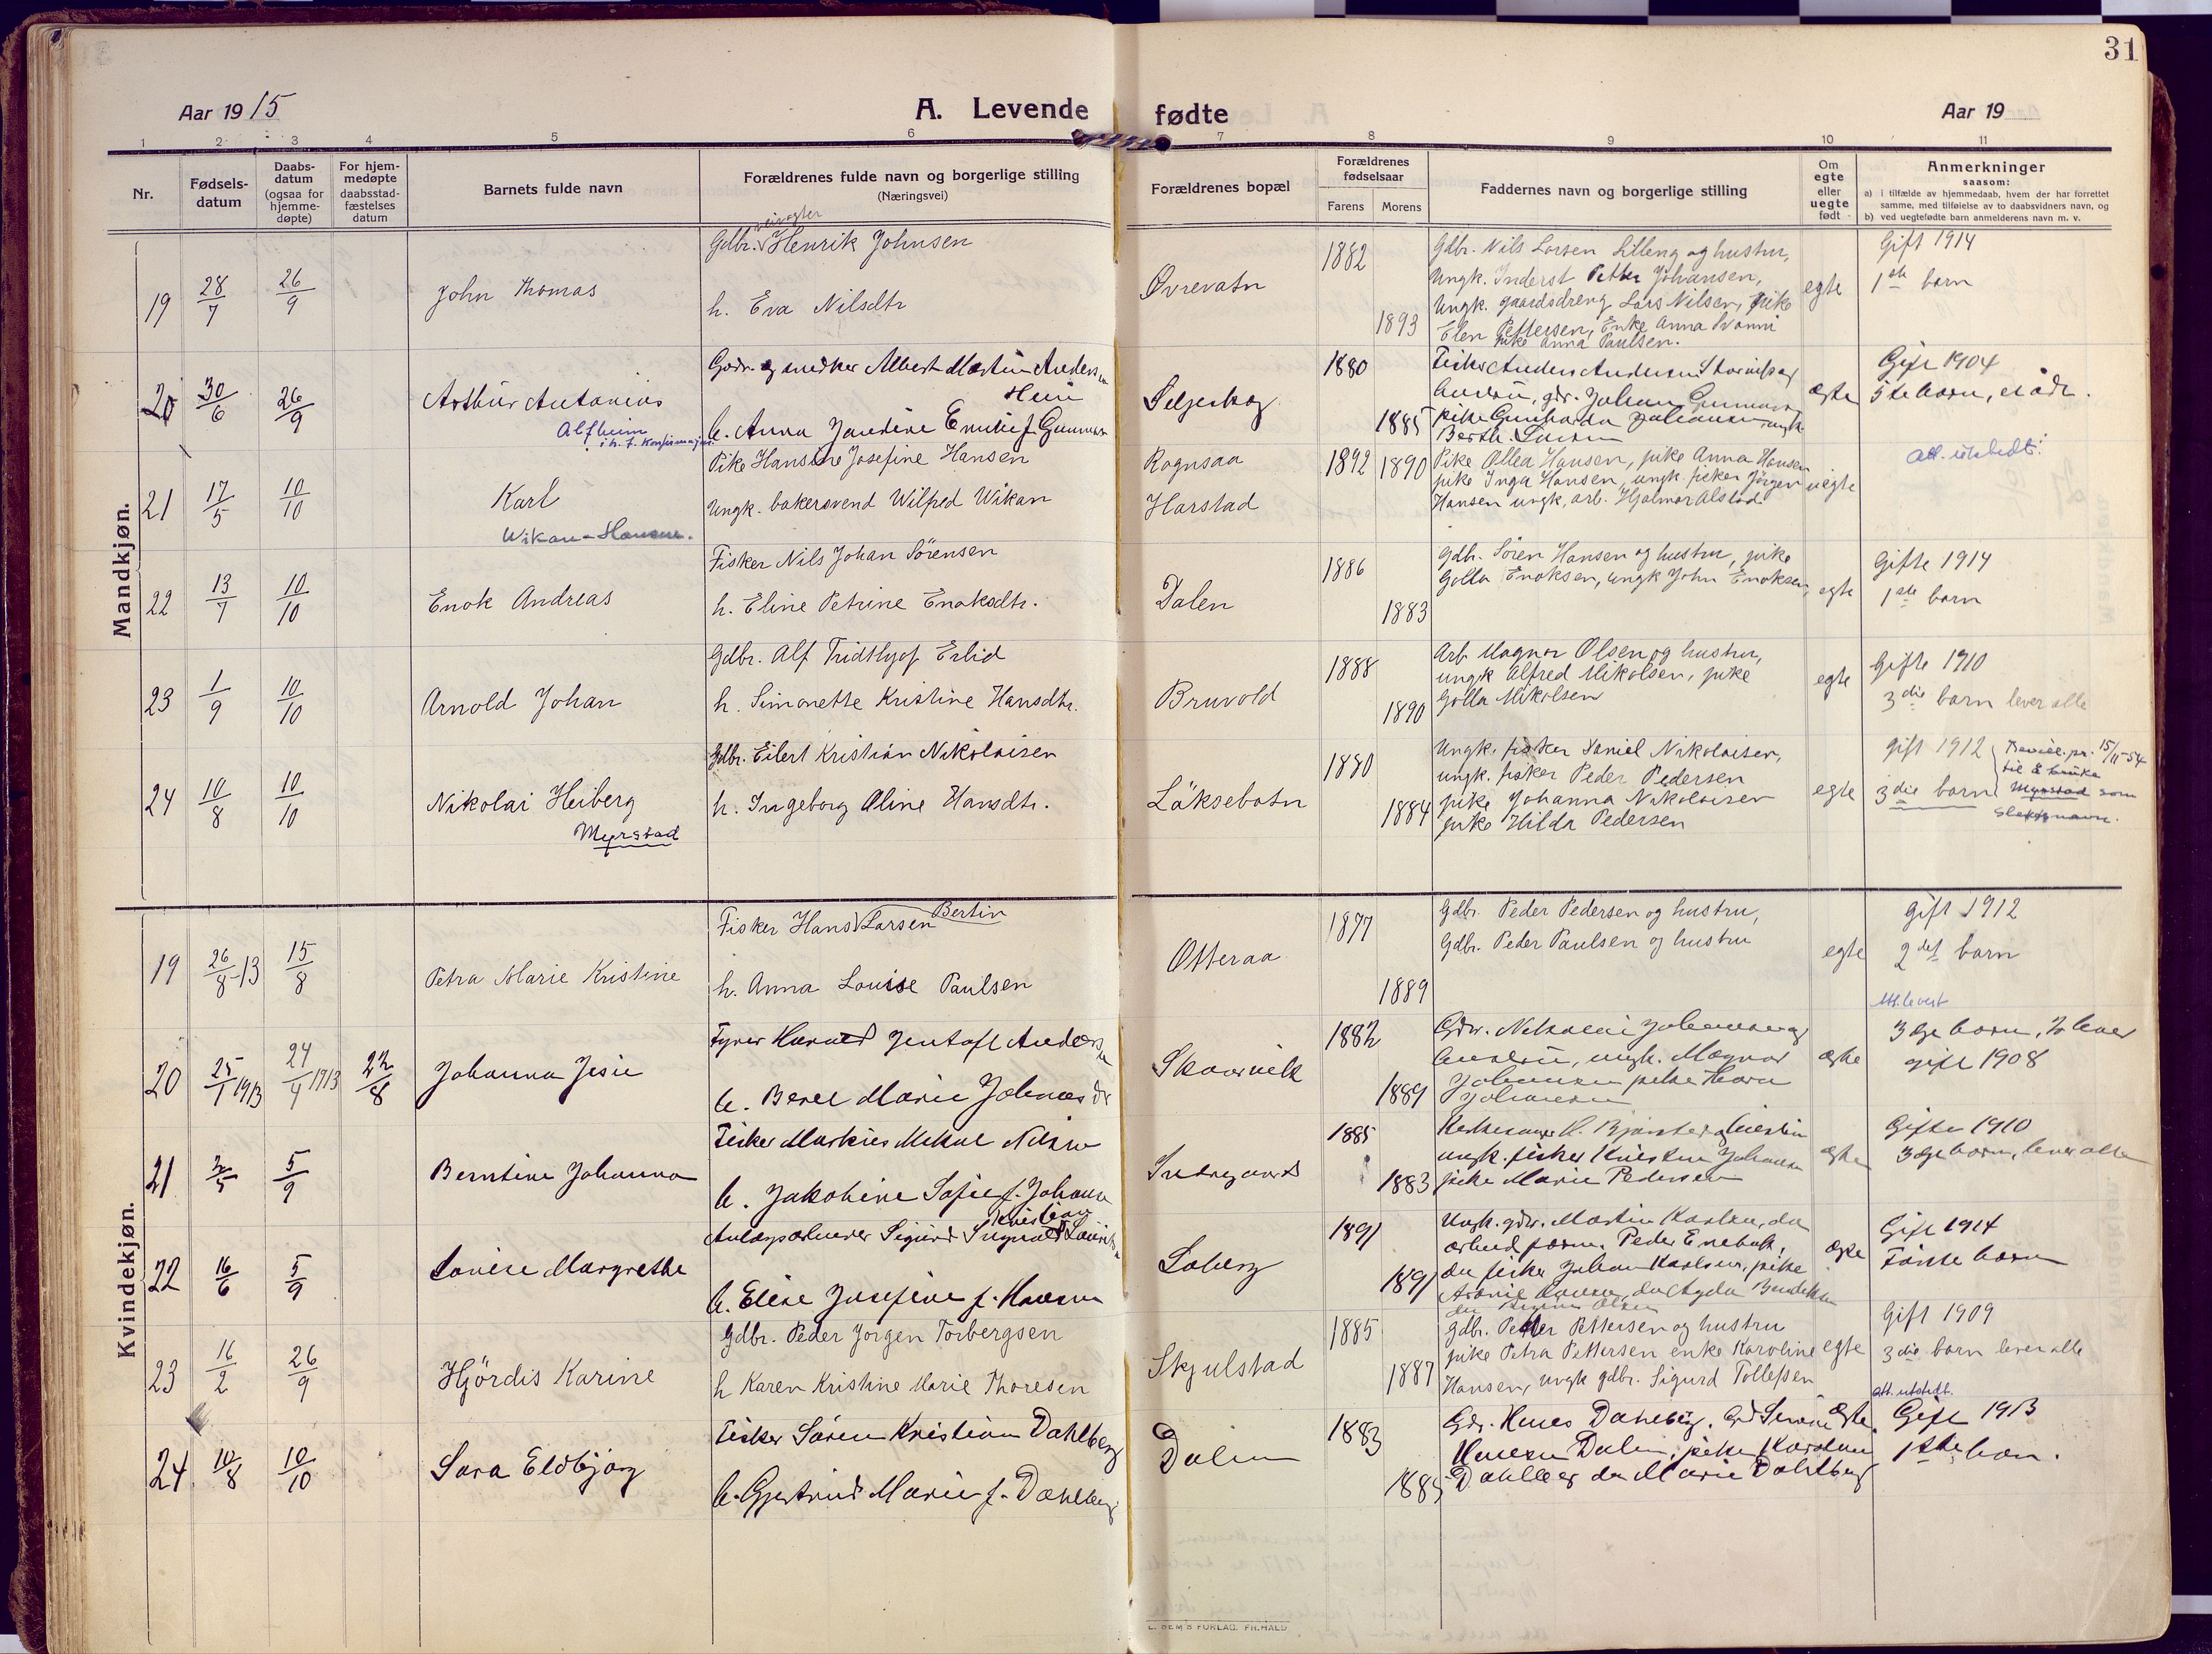 31
Aar 1915
A. Levende fødte
Aar 19
1 2 3 4 5 6 7 8 9 10 11
Nr.
Fødsels-
datum
Daabs-
datum
(ogsaa for
hjemme-
døpte)
For hjem-
medøpte
daabsstad-
fæstelses
datum
Barnets fulde navn
Forældrenes fulde navn og borgerlige stilling
(Næringsvei)
Forældrenes bopæl
Forældrenes
fødselsaar
Farens Morens
Faddernes navn og borgerlige stilling
Om
egte
eller
uegte
født
Anmerkninger
saasom:
a) i tilfælde av hjemmedaab, hvem der har forrettet
samme, med tilføielse av to daabsvidners navn, og
b) ved uegtefødte barn anmelderens navn m. v.
Mandkjøn.
19 28/7 26/9 John Thomas
Gdbr. Henrik Johnsen
h. Eva Nilsdtr
Øvrevatn
1882
1893
Gdbr. Nils Larsen Lilleng og hustru,
Ungk. Inderst Petter Johansen,
Ungk. gaardsdreng Lars Nilsen, pike
Elen Pettersen, Enke Anna
pike Anna Paulsen.
egte
Gift 1914
1ste barn
20 30/6 26/9 Arthur Antonius
Alfheim
Albert Martin Andersen
h. Anna Jendine Emilie f. Gunnarsen
Seljeskog
1880
1885
Fisker Anders Andersen
gdr. Johan
pike
egte
Gift 1904
21 17/5 10/10 Karl
Wikan-Hansen.
Pike Hansine Josefine Hansen
Ungk. bakersvend Wilfred Wikan
Rognsaa
Harstad
1892 1890
Pike Ollea Hansen, pike Anna Hansen
pike Inga Hansen, ungk. fisker Jörgen
Hansen ungk. arb. Hjalmar Alstad
uegte
Att. utstedt.
22 13/7 10/10 Enok Andreas
Fisker Nils Johan Sörensen
h. Eline Petrine Enoksdtr.
Dalen
1886
1883
Gdb. Sören Hansen og hustru, pike
Golla Enoksen, ungk John Enoksen,
egte
Gifte 1914
1ste barn
23 1/9 10/10 Arnold Johan
Gdbr. Alf Fridthjof Erlid
h. Simonette Kristine Hansdtr.
Bruvold
1888
1890
Arb. Magnar Olsen og hustru,
ungk Alfred Mikalsen, pike
Golla Mikalsen
egte
Gifte 1910
3die barn lever alle
24 10/8 10/10 Nikolai Heiberg
Myrstad
Gdbr. Eilert Kristian Nikolaisen
h. Ingeborg Aline Hansdtr.
Löksebotn
1880
1884
Ungk. fisker Daniel Nikolaisen,
ungk. fisker Peder Pedersen
pike Johanna Nikolaisen
pike Hilda Pedersen
egte
gift 1912
3die barn
Bevill. pr. 15/11-54
til å bruke
Myrstad som
slektsnavn.
Kvindekjøn.
19 26/8-13 15/8 Petra Marie Kristine
Fisker Hans Larsen
Bertin
h. Anna Louise Paulsen
Otteraa
1877
1889
Gdbr. Peder Pedersen og hustru,
Gdbr. Peder Paulsen og hustru
egte
gift 1912
2det barn
20 25/1 1913 24/4 1913 22/8 Johanna Jesie
Jentoft Andersen
h. Berel Marie
Skaarvik
1882
1889
Gdbr. Nikolai Johannesen og
ungk. Magnar
Johansen pike
egte
3dje barn, 2 lever
gift 1908
21 2/5 5/9 Berntine Johanna
Fisker Markus Mikal Nilsen
h. Jakobine Sofie f. Johansen
Indregaard
1885
1883
ungk. fisker Johansen
pike Marie Pedersen
egte
Gifte 1910
3dje barn, lever alle
22 16/6 5/9 Lovise Margrethe
Anlægsarbeider Sigurd
Kristian
h. Eline Josefine f. Hansen
Loberg
1891
1891
Ungk. gdbr. Martin Karlsen, do
Peder Enebakk,
do fisker Johan Karlsen, pike
egte
Gift 1914
Første barn
23 16/2 26/9 Hjördis Karine
Gdbr. Peder Jorgen Torbergsen
h Karen Kristine Marie Thoresen
Skjulstad
1885
1887
Gdbr. Petter Pettersen og hustru
pike Petra Pettersen enke Karoline
Hansen, ungk gdbr. Sigurd Tollefsen
egte
Gift 1909
3die barn lever alle
24 10/8 10/10 Sara Eldbjørg
Fisker Sören Kristian Dahlberg
h. Gjertrud Marie f. Dahlberg
Dalen
1883
1885
Gdr. Hans Dahlberg,
Hansen Dalen, pike
Dahlberg do Marie Dahlberg
egte
att. utstedt.
Gift 1913
1ste barn.
E. SEM'S FORLAG. FR.HALD